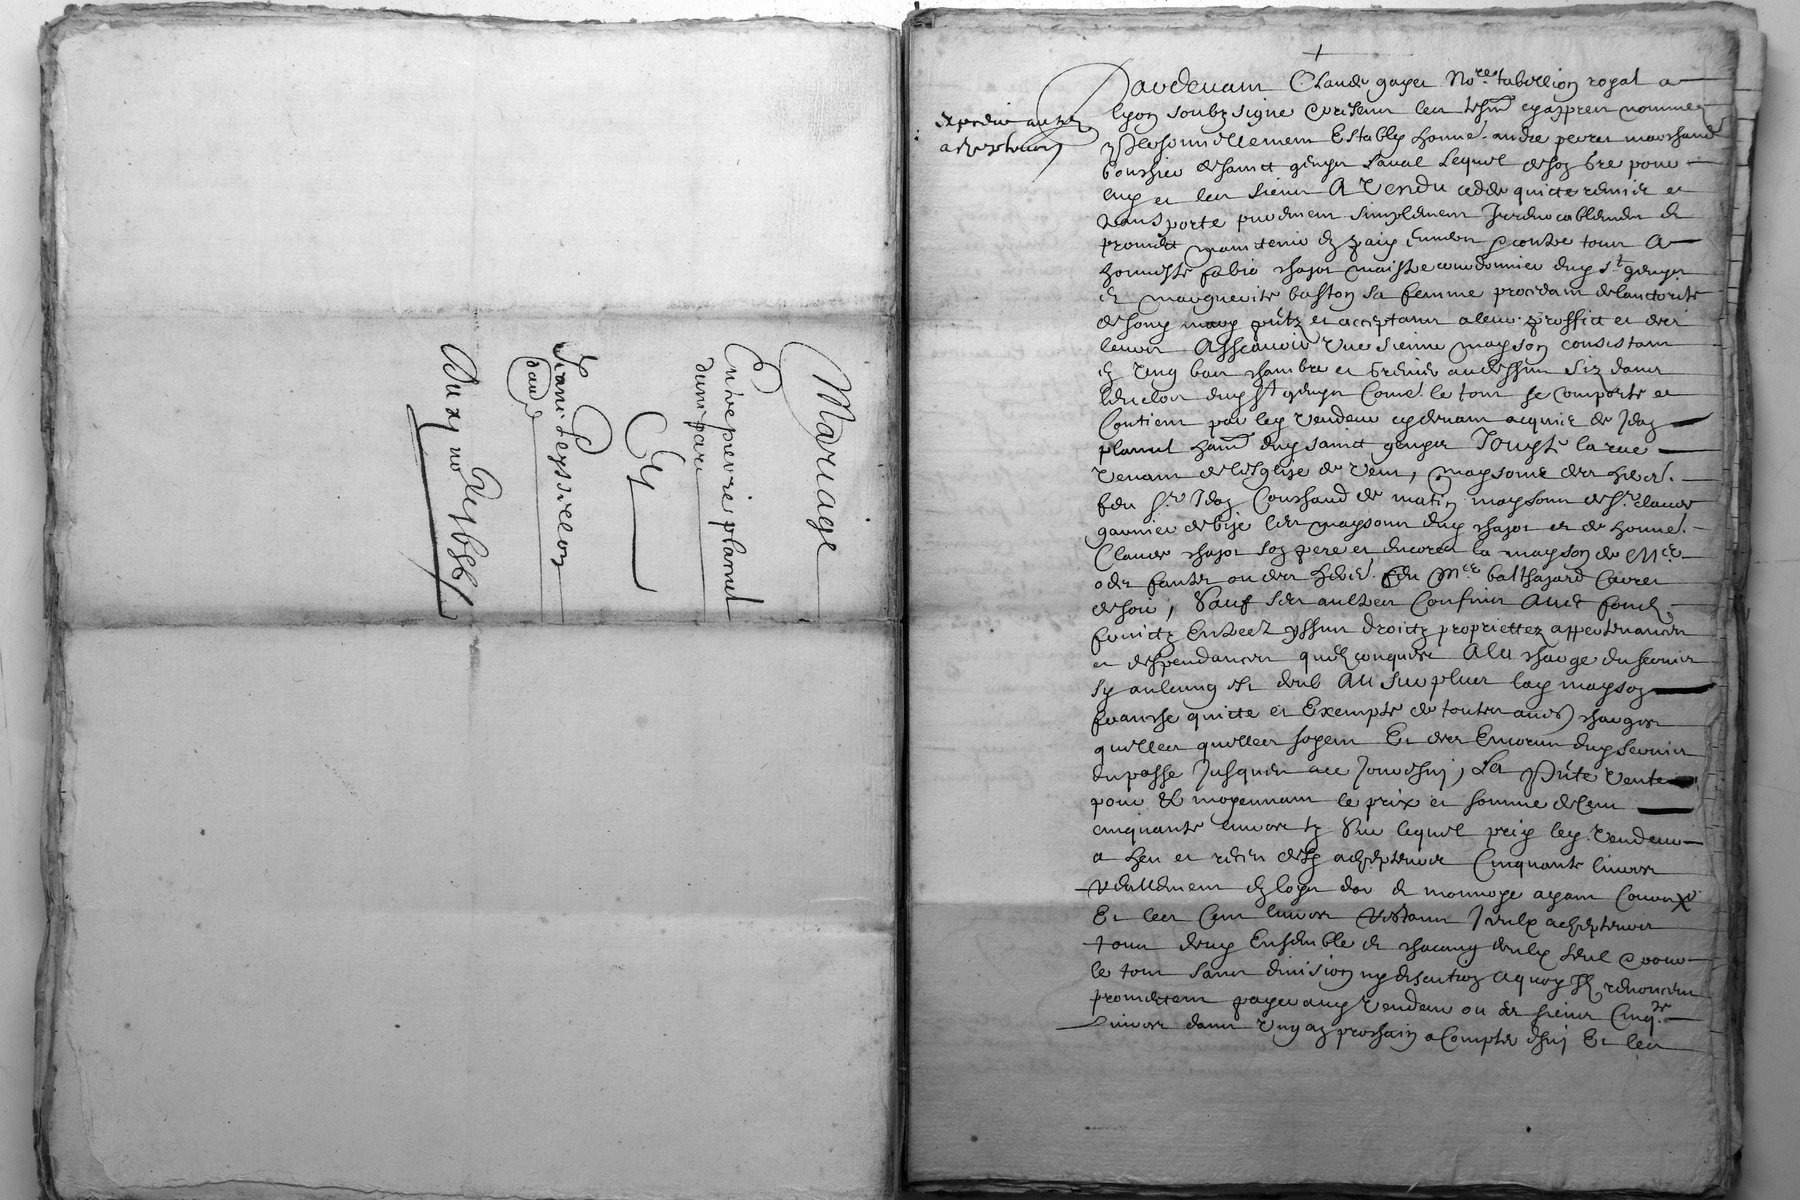 Mariage
Entre pierre planel
dune part
Et
Jeanne peyssellon
daul.
Du xj no
+
Pardevant Claude gayet No.re tabellion royal a
lyon soubzsigne presens les tesm. cyappres nommes
expedie aux
achepteurs
personnellement Estably honne. andre perret marchand
bouchier de sainct genys laval Lequel de son gre pour
luy et les siens A Vendu cedde quicte remis et
transporte purement simplement Irrevocablement et
promect maintenir en paix envers et contre tous A
honneste fabio chajot maistre courdonnier dudict St genys
et marguerite baston sa femme procedant de lauctorite
desond mary pntz et acceptans a leur proffict et des
leurs Assavoir Une sienne mayson consistant
en Ung bas chambre et grenier audessus siz dans
lenclos dud St genys Come le tout se comporte et
Contient par led Vendeur cydevant acquise de Jean
planul habit dud sainct genys Jouxte la rue
Venant de lesglise de Vent, maysons des hered.
feu Sr Jean Couchaud de matin maysons de Sr claude
garnier de bize les maysons dud chajot et de honne.
Claude chajot son pere et encores la mayson de Me
odet fautre ou des hered. feu Me balthazard Carret
de soir, Sauf ses aultres Confins Avec fondz
fruictz Entrees yssues droictz proprietez appartenances
et deppendances quelconques A la charge du servis
sy aulcung est deub Au surplus lad mayson
franche quicte et Exempte de toutes aues charges
quelles quelles soyent Et des Encourus dud servis
du passe Jusques a ce Jourdhuy, La pnte Vente
pour et moyennant le prix et somme de Cent
cinquante livres tz Sur lequel prix led. Vendeur
a heu et receu desd achepteurs Cinquante livres
reallement en logis dor et monnoye ayant Cours
Et les Cent livres restans Iceulx achepteurs
tous deux Ensemble et chacung deulx seul et pour
le tout sans division ny discution Aquoy Ilz renoncent
promettent payer aud Vendeur ou es siens Cinq.te
Livres dans Ung an prochain a Compter dhuy Et les